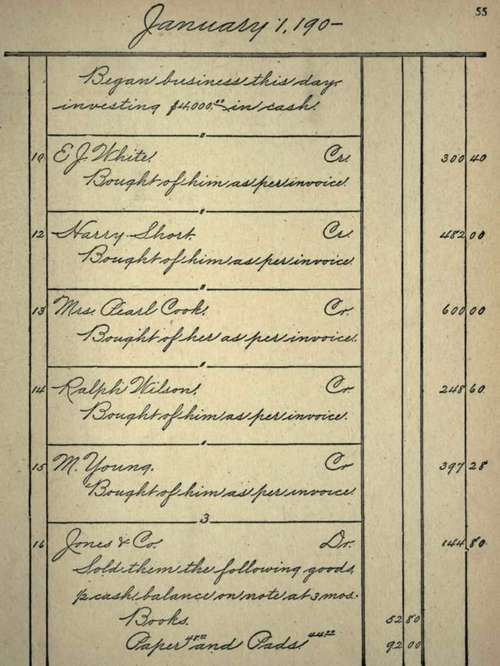 55
January 1, 190-
Began business this day,
investing $4,000.00 in cash.
"
10 E J White. Cr. 300 40
Bought of him as per invoice.
"
12 Harry Short. Cr. 482 00
Bought of him as per invoice
"
13 Mrs. Pearl Cook. Cr. 600 00
Bought of her as per invoice.
"
14 Ralph Wilson. Cr 248 60
Bought of him as per invoice.
"
15 M. Young. Cr 397 28
Bought of him as per invoice
3
16 Jones & Co. Dr. 144 80
Sold them the following goods
1/2 cash balance on note at 3 mos.
Books. 52 80
Paper and Pads. 92 00